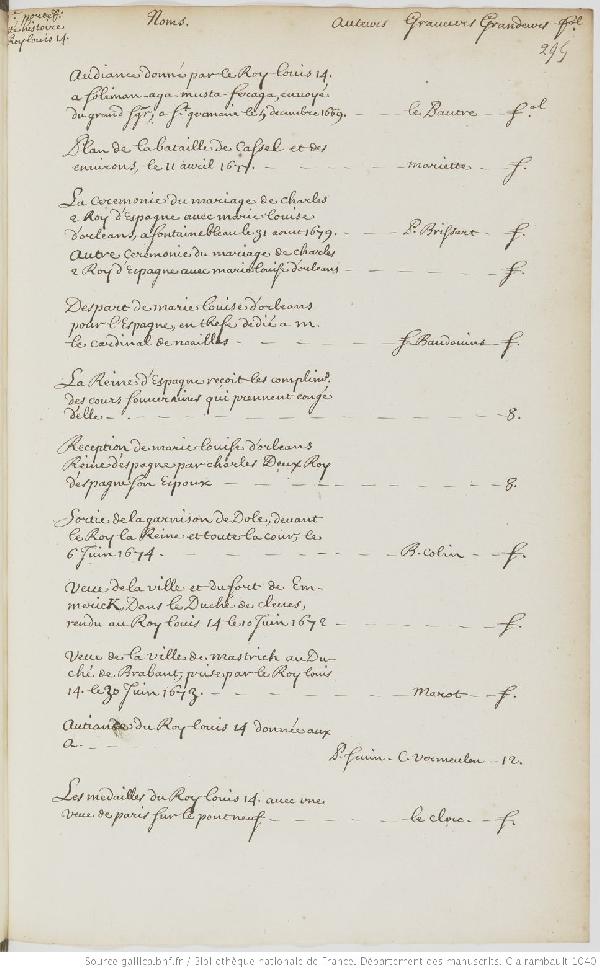 pour l'
histoire
Roy louis 14.
Noms. Auteurs Graveurs Grandeurs fol
295
Audiance donné par le Roy louis 14.
a soliman-aga-musta-feraga, envoyé
du grand sgr, a St germain le 5 decembre 1669. le Pautre fol
Plan de la bataille de Cassel et des
environs, le 11 avril 1677. mariette f.
La ceremonie du mariage de charles
2 Roy d'Espagne avec marie louise
d'orleans, a fontainebleau le 31 aout 1679. P. Brissart f.
Autre ceremonie du mariage de charles
2 Roy d'Espagne avec marie louise d'orleans f.
Despart de marie louise d'orleans
pour l'Espagne, en these dedié a m.
le cardinal de noailles f Baudouins f.
La Reine d'Espagne reçoit les complimts.
des cours souveraines qui prennent congé
d'elle 8.
Reception de marie louise d'orleans
Reine d'espagne par charles Deux Roy
d'espagne son Espoux 8.
Sortie de la garnison de Dole, devant
le Roy la Reine et toute la cour, le
6 Juin 1674. R. colin f.
Veue de la ville et du fort de Em-
merick, Dans le Duché de cleves,
rendu au Roy louis 14 le 10 Juin 1672 f.
Veue de la ville de mastrich au Du-
ché de Brabant, prise par le Roy louis
14. le 30 Juin 1673. Marot f.
Autiance du Roy louis 14 donnée aux
a.
C. Vermeulen 12.
Les medailles du Roy louis 14. avec une
veue de paris sur le pont neuf le clerc f.
Source gallica.bnf.fr / Bibliothèque nationale de France. Département des manuscrits. Clairambault 1040